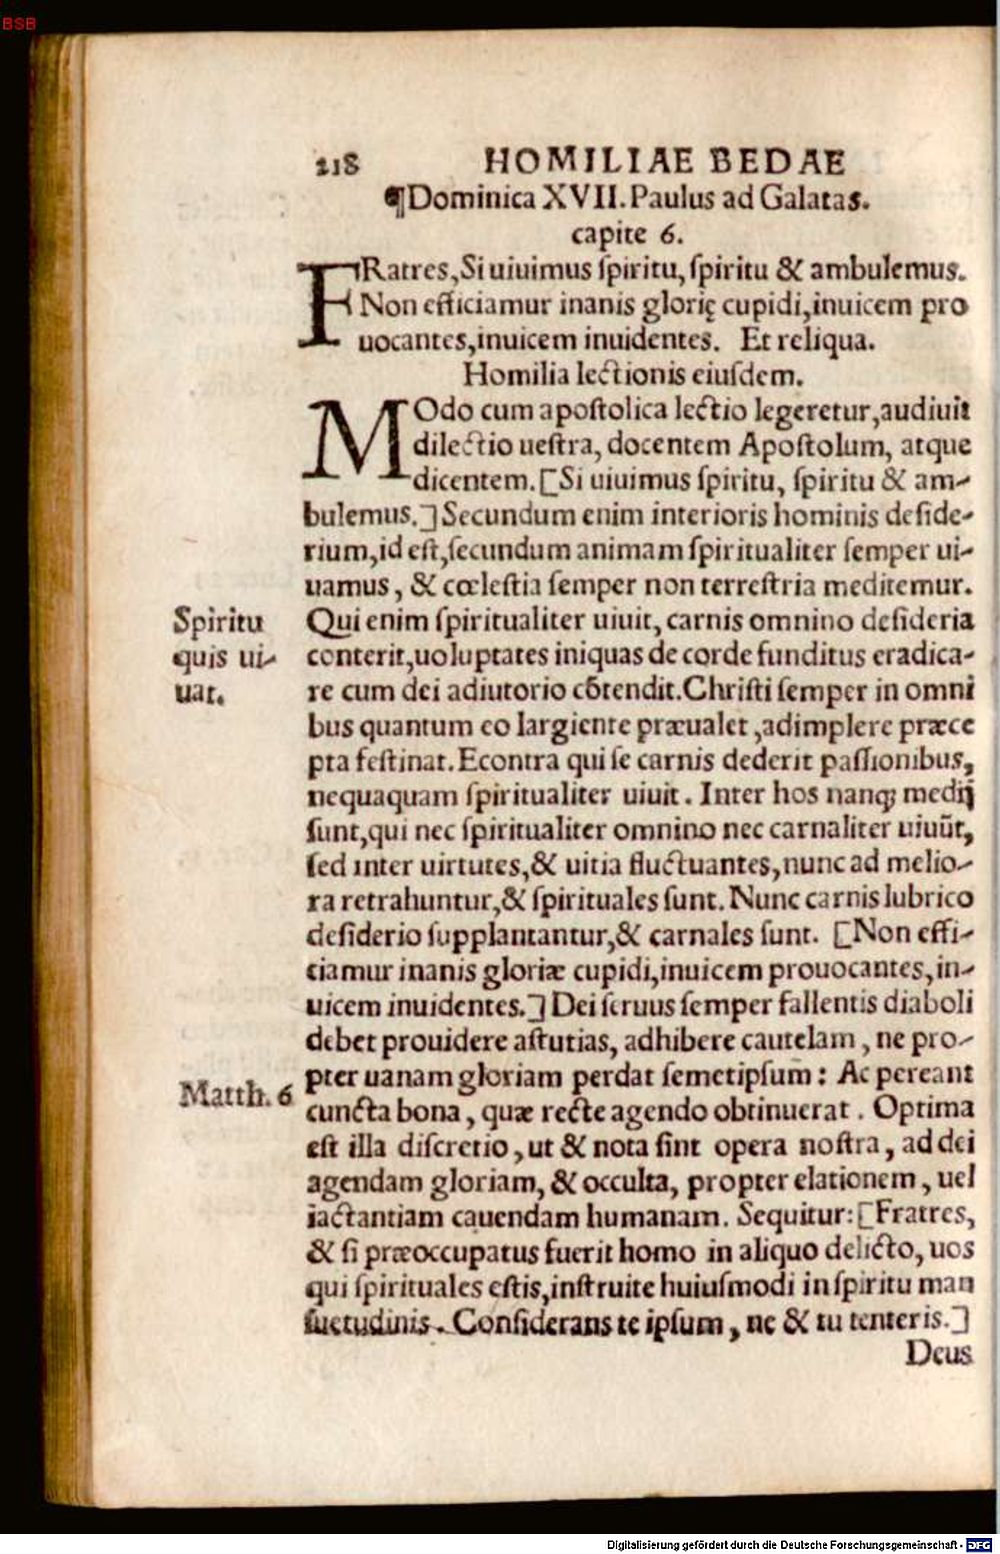 BSB
218 HOMILIAE BEDAE
¶Dominica XVII. Paulus ad Galatas.
capite 6.
FRatres, Si uiuimus spiritu, spiritu & ambulemus.
Non efficiamur inanis glorię cupidi, inuicem pro
uocantes, inuicem inuidentes. Et reliqua.
Homilia lectionis eiusdem.
MOdo cum apostolica lectio legeretur, audiuit
dilectio uestra, docentem Apostolum, atque
dicentem. [Si uiuimus spiritu, spiritu & am-
bulemus.] Secundum enim interioris hominis deside-
rium, id est, secundum animam spiritualiter semper ui-
uamus, & cœlestia semper non terrestria meditemur.
Spiritu
quis ui-
uat.
Qui enim spiritualiter uiuit, carnis omnino desideria
conterit, uoluptates iniquas de corde funditus eradica-
re cum dei adiutorio cōtendit. Christi semper in omni
bus quantum eo largiente præualet, adimplere præce
pta festinat. Econtra qui se carnis dederit passionibus,
nequaquam spiritualiter uiuit. Inter hos nanq; medij
sunt, qui nec spiritualiter omnino nec carnaliter uiuūt,
sed inter uirtutes, & uitia fluctuantes, nunc ad melio-
ra retrahuntur, & spirituales sunt. Nunc carnis lubrico
desiderio supplantantur, & carnales sunt. [Non effi-
tiamur inanis gloriæ cupidi, inuicem prouocantes, in-
uicem inuidentes.] Dei seruus semper fallentis diaboli
debet prouidere astutias, adhibere cautelam, ne pro-
pter uanam gloriam perdat semetipsum: Ac pereant
Matth. 6
cuncta bona, quæ recte agendo obtinuerat. Optima
est illa discretio, ut & nota sint opera nostra, ad dei
agendam gloriam, & occulta, propter elationem, uel
iactantiam cauendam humanam. Sequitur: [Fratres,
& si præoccupatus fuerit homo in aliquo delicto, uos
qui spirituales estis, instruite huiusmodi in spiritu man
suetudinis. Considerans te ipsum, ne & tu tenteris.]
Deus
Digitalisierung gefördert durch die Deutsche Forschungsgemeinschaft - DFG